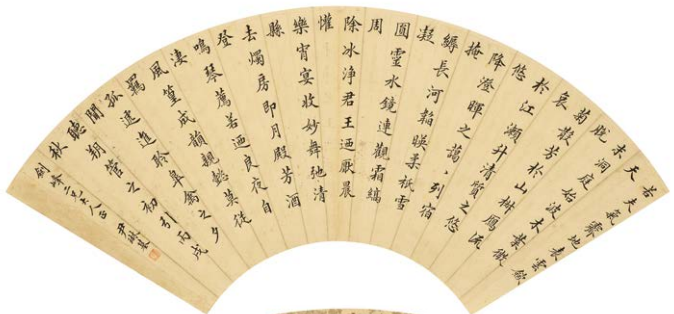 若夫氣霽地表雲斂
天
末洞庭始波木葉微
脫
菊散芳於山椒雁流
哀
於江瀨升清質之悠
悠
降澄暉之藹、列宿
掩
縟長河韜暎柔祇雪
凝
圓靈水鏡連觀霜縞
周
除冰淨君王迺厭晨
懽
樂宵宴收妙舞弛清
縣
去燭房即月殿芳酒
登
鳴琴薦若迺良夜自
淒
風篁成韻親懿莫從
羈
孤遞進聆皋禽之夕
聞
聽朔管之初引丙戌
秋
劍峰二兄大人正尹琳基